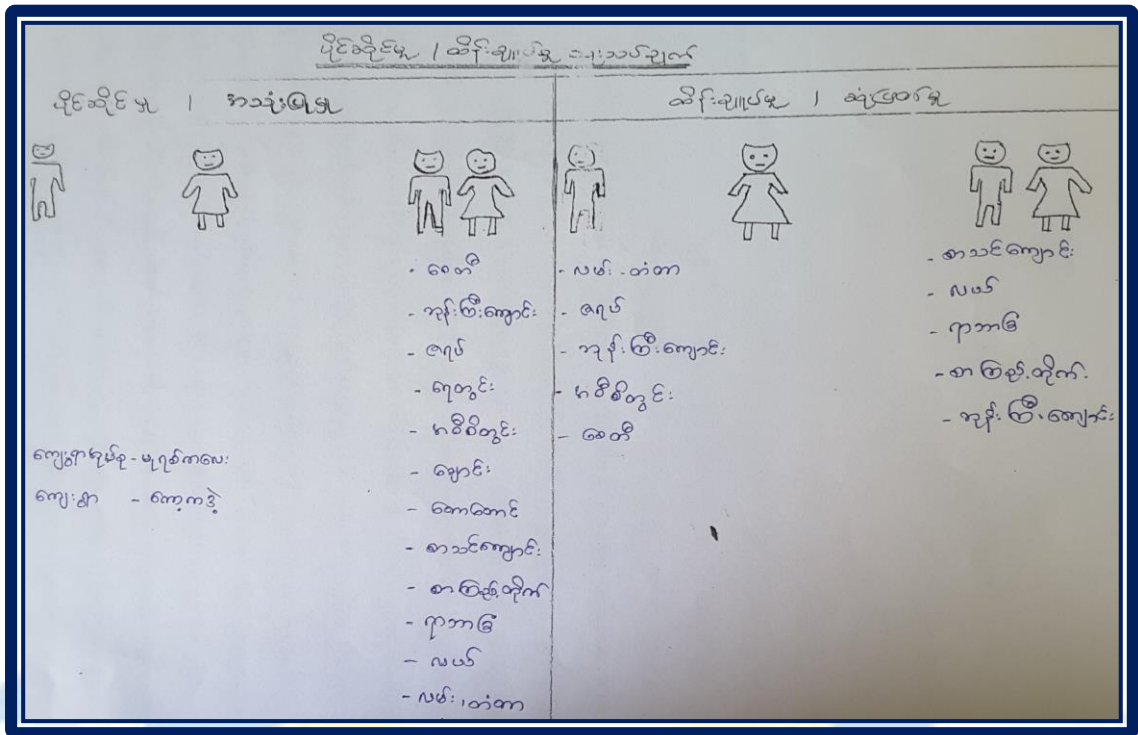 ပိုင်ဆိုင်မှု / ထိန်းချုပ်မှု လေ့သပ်ချက်
ပိုင်ဆိုင်မှု / အသုံးပြုမှု
- စေတီ
- ဘုန်းကြီးကျောင်း
- ဇရပ်
- ရေတွင်း
- အဝီစိတွင်း
- ချောင်း
- တောတောင်
- စာသင်ကျောင်း
- စာကြည့်တိုက်
- ရာဘာခြံ
- လယ်
- လမ်း၊ တံတာ
ကျေးရွာအုပ်စု - မုရစ်ကလေး
ကျေးရွာ - ကော့ကဒွဲ့
ထိန်းချုပ်မှု / ဆုံးဖြတ်မှု
- လမ်း - တံတာ
- ဇရပ်
- ဘုန်းကြီးကျောင်း
- အဝီစိတွင်း
- စေတီ
- စာသင်ကျောင်း
- လယ်
- ရာဘာခြံ
- စာကြည့်တိုက်
- ဘုန်းကြီးကျောင်း